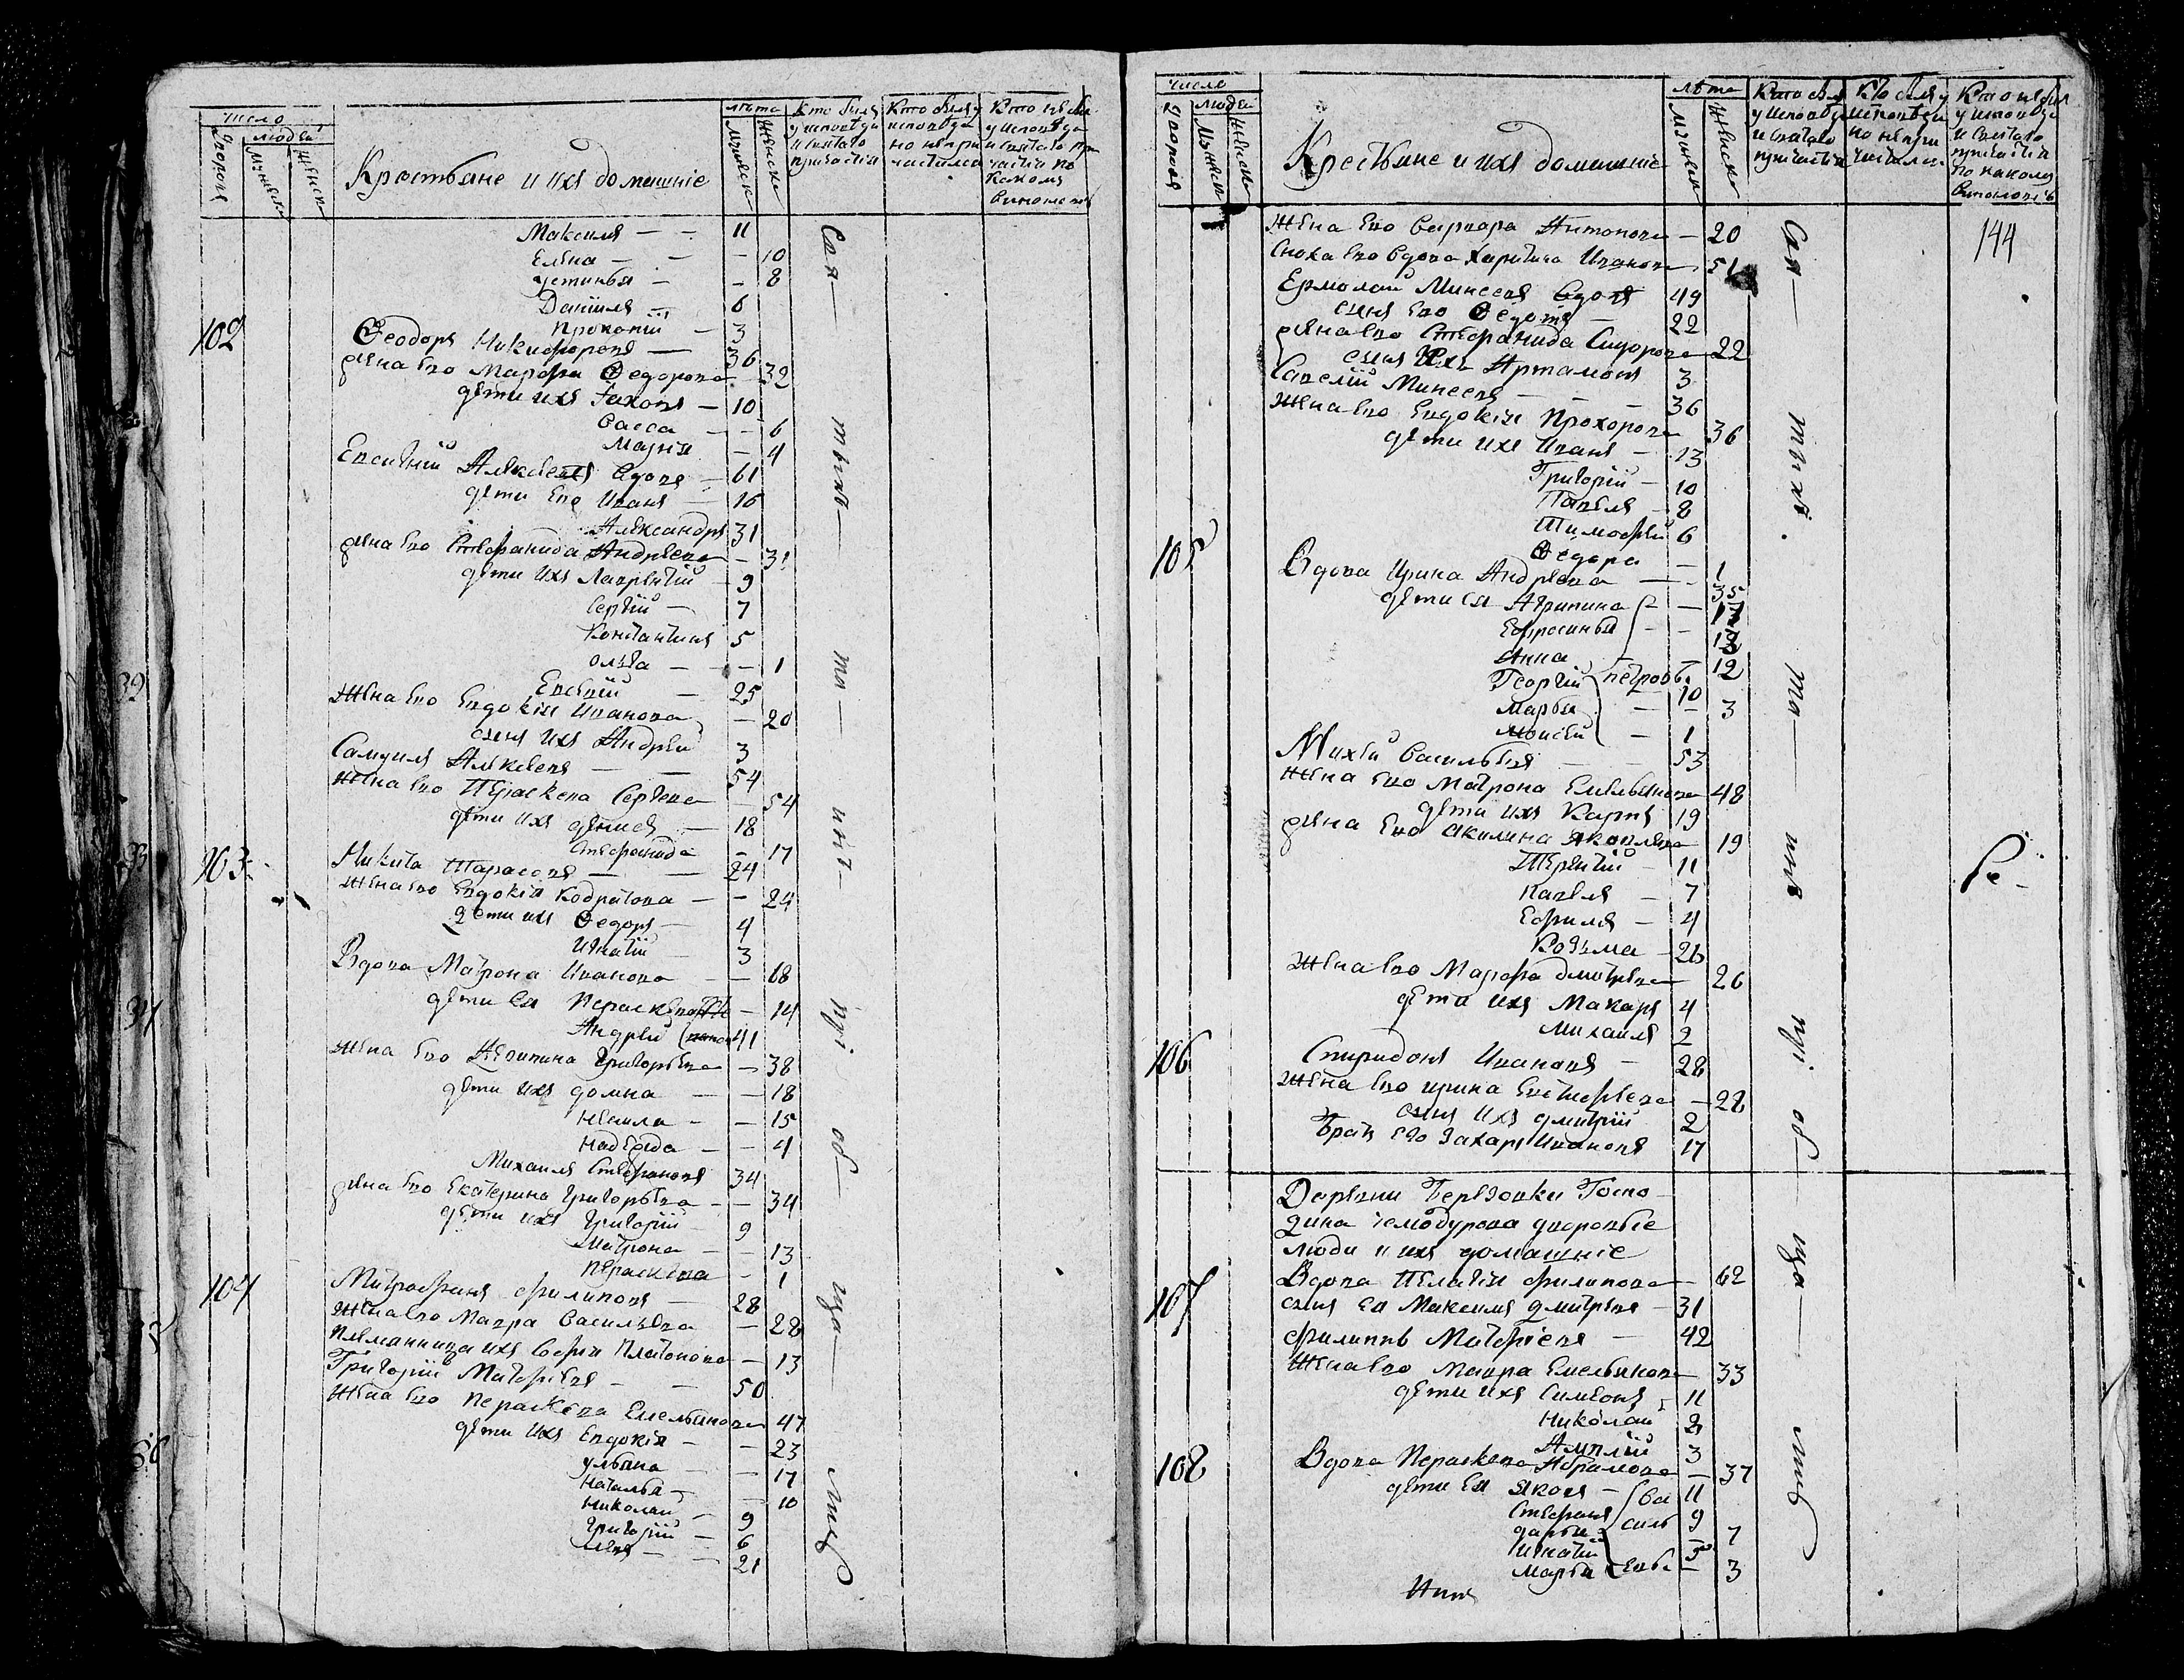 Число
людей
лѣта
Дворовъ
Мужеск
Женск
Крестьяне и ихъ домашнiе
Мужеск
Женск
Кто былъ у исповѣди и святаго причастiя
Кто былъ у исповѣди но не причастился
Кто не былъ у исповѣди и святаго причастiя по какому винословiю
Максимъ — — 11
Елена — — — 10
устинья — — 8
Данiилъ — 6
Прокопiй — 3
102 Ѳеодоръ Никифоровъ — 36
жена Ево Марфа Ѳедорова — 32
дети ихъ Iаковъ — 10
Васса — — 6
Марiя — 4
Евсевiй Алексеевъ вдовъ — 61
дети Ево Иванъ — 16
Александръ 31
жена Ево Стефанида Андреева — 31
дети ихъ Лаврентiй — 9
Сергiй — 7
Константинъ 5
олга — — — 1
Евсевiй — 25
Жена Ево Евдокiя Иванова — 20
сынъ ихъ Андрей 3
Самуилъ Алексеевъ — — 54
жена Ево Пераскева Сергеева — 54
дети ихъ денисъ — 18
Стефанида — 17
103 Никита Тарасовъ — — 24
жена Ево Евдокiя Кодратова — — 24
дети ихъ Ѳедоръ — 4
Игнатiй 3
Вдова Матрона Иванова — — 68
дети Ея Пераскева — 14
Андрей 41
жена Ево Агрипина Григорьева — 38
дети ихъ домна — — 18
Неонила — — 15
Надежда — — 4
Михаилъ Стефановъ 34
жена Ево Екатерина Григорьева — — 34
дети ихъ Григорiй — 9
Матрона — — 13
Пераскева — 1
104 Митрофанъ филиповъ — 28
жена Ево Мавра Васильева — 28
Племянница ихъ Софья Платонова — 13
Григорiй Матфѣевъ — — 50
жена Ево Пераскева Емельянова 47
дети ихъ Евдокiя — — 23
ульяна — — 17
Наталья — — 10
Николай — 9
Григорiй — 6
Левъ — — 21
Сея — твхъ — то — инѣ — прi об — що — лиѣ
Число
людей
лѣта
Дворовъ
Мужеск
Женск
Крестьяне и ихъ домашнiе
Мужеск
Женск
Кто былъ у исповѣди и святаго причастiя
Кто былъ у исповѣди но не причастился
Кто не былъ у исповѣди и святаго причастiя по какому винословiю
144
Жена Ево Варвара Антонова — 20
Сноха Ево вдова Харитина Иванова 51
Ермолай Минеевъ вдовъ 49
сынъ Ево Ѳедотъ — 22
жена Ево Стефанида Сидорова — 22
сынъ Ихъ Артамонъ 3
Савелiй Минеевъ — — 36
Жена Ево Евдокiя Прохорова 36
дети ихъ Иванъ — 13
Григорiй — 10
Павелъ — 8
Тимофей 6
Ѳедора — 1
105 Вдова Ирина Андреева — — 35
дети ея Агрипина — — 17
Ефросинья — — 13
Анна — 12
Георгiй петровы 10
Марья — — 3
Моисей — 1
Михей Васильевъ — 53
жена Ево Матрона Емельянова 48
дети ихъ Карпъ 19
жена Ево Акилина Яковлева 19
Терентiй — 11
Павелъ — 7
Ефимъ — 4
Козьма — 26
Жена Ево Марфа Дмитрева — 26
дети ихъ Макаръ 4
Михаилъ 2
106 Спиридонъ Ивановъ — 28
Жена Ево ирина Евстифеева — 28
сынъ ихъ дмитрiй 2
Братъ Его Захаръ Ивановъ 17
Деревни Березовки Госпо
дина чемодурова дворовые
люди и ихъ домашнiе
107 Вдова Пелагiя филипова — 62
сынъ Ея Максимъ Дмитревъ — 31
филиппъ Матфiевъ — 42
Жена Ево Мавра Емельянова 33
дети ихъ Симеонъ — 11
Николай 8
Амплiй 3
108 Вдова Пераскева Абрамова — 37
дети Ея Яковъ — 11
Стефанъ 9
дарья 7
Игнатiй 5
Марья — 3
Васильевы
Сея — тихъ — то — инѣ прi об — що — лиѣ